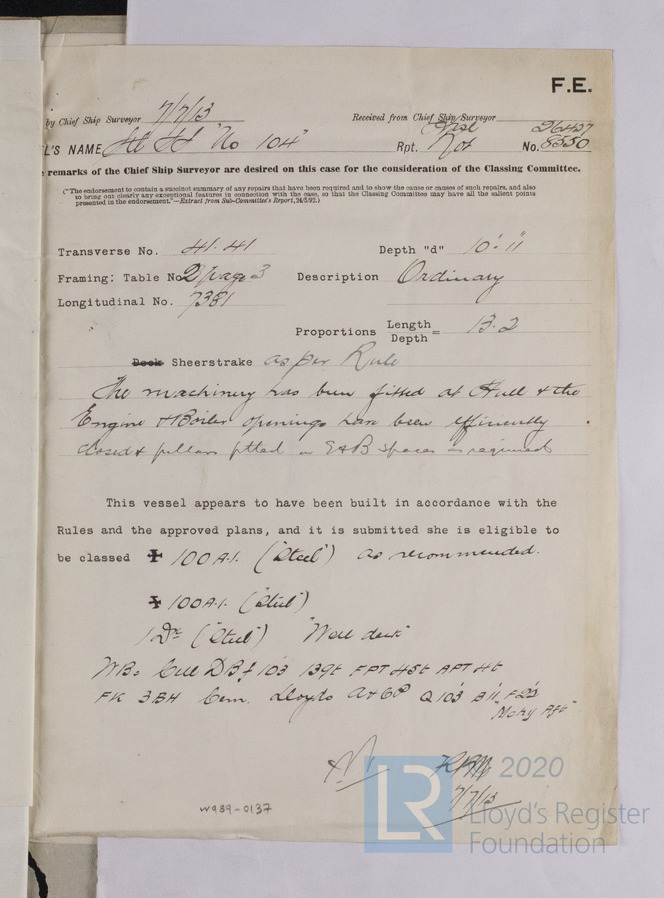 F.E.
by Chief Ship Surveyor 7/7/13 Received from Chief Ship Surveyor
Hull 26427
L'S NAME "No 104" Rpt. Rot No. 5550
remarks of the Chief Ship Surveyor are desired on this case for the consideration of the Classing Committee.
("The endorsement to contain a succinct summary of any repairs that have been required and to show the cause or causes of such repairs, and also
to bring out clearly any exceptional features in connection with the case, so that the Classing Committee may have all the salient points
presented in the endorsement."—Extract from Sub-Committee's Report, 24/5/92.)
Transverse No. 41.41 Depth "d" 10'.11
Framing: Table No 2 page 3 Description Ordinary
Longitudinal No. 7381
Proportions Length/Depth = 13.2
Deck Sheerstrake as per Rule
The machinery has been fitted at Hull & the
Engine & Boiler openings have been efficiently
closed & pillars fitted in E&B spaces as required
This vessel appears to have been built in accordance with the
Rules and the approved plans, and it is submitted she is eligible to
be classed ✠ 100A.1. ("Steel") as recommended.
✠ 100A.1. ("Steel")
1 Dk ("Steel") "Well deck"
WB= Cell DBf 103' 139t FPT 45t APT 4t
FK 3BH Cem. Lloyds A&CP Q 103' B11' F23'
"Mchy Aft"
7/7/13
W989-0137
LR
© 2020
Lloyd's Register
Foundation